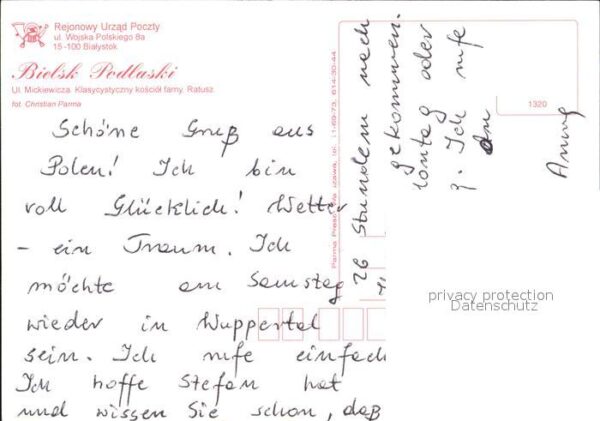 Rejonowy Urząd Poczty
ul. Wojska Polskiego 8a
15-100 Białystok
Bielsk Podlaski
Ul. Mickiewicza. Klasycystyczny kościół farny. Ratusz.
fot. Christian Parma
Schöne Gruß aus
Polen! Ich bin
voll Glücklich! Wetter
- ein Traum. Ich
möchte am Samstag
wieder in Wuppertal
sein. Ich rufe einfach
Ich hoffe Stefan hat
und wissen Sie schon, daß
26 Stunden nach
gekommen.
oder
. Ich rufe
an
1320
privacy protection
Datenschutz